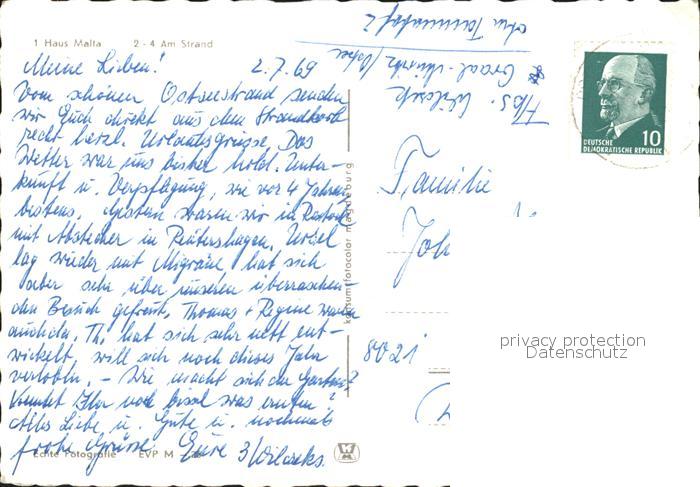 1 Haus Malta 2 - 4 Am Strand
Meine Lieben! 2.7.69
Vom schönen Ostseestrand senden
wir Euch direkt aus dem Strandkorb
recht herzl. Urlaubsgrüsse. Das
Wetter war uns bisher hold. Unter-
kunft u. Verpflegung, wie vor 4 Jahren
bestens. Gestern waren wir in Rostock
mit Abstecher in Reutershagen. Ursel
lag wieder mit Migräne, hat sich
aber sehr über unseren überraschen-
den Besuch gefreut, Thomas + Regine waren
auch da. Th. hat sich sehr nett ent-
wickelt, will sich noch dieses Jahr
verloben. - Wie macht sich der Garten?
Konntet Ihr noch bissel was ernten?
Alles Liebe u. Gute u. nochmals
frohe Grüsse Eure 3
Echte Fotografie EVP M
konsumfotocolor magdeburg
Abs.
Graal-Müritz / Ostsee
Familie
Joh
8021
10
DEUTSCHE
DEMOKRATISCHE REPUBLIK
privacy protection
Datenschutz